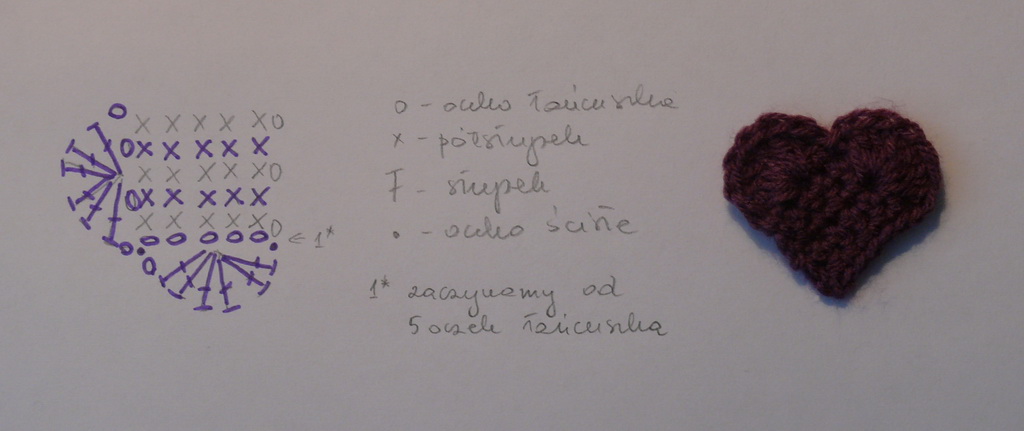 ← 1*
o - oczko łańcuszka
x - półsłupek
Ŧ - słupek
• - oczko ścisłe
1* zaczynamy od
5 oczek łańcuszka